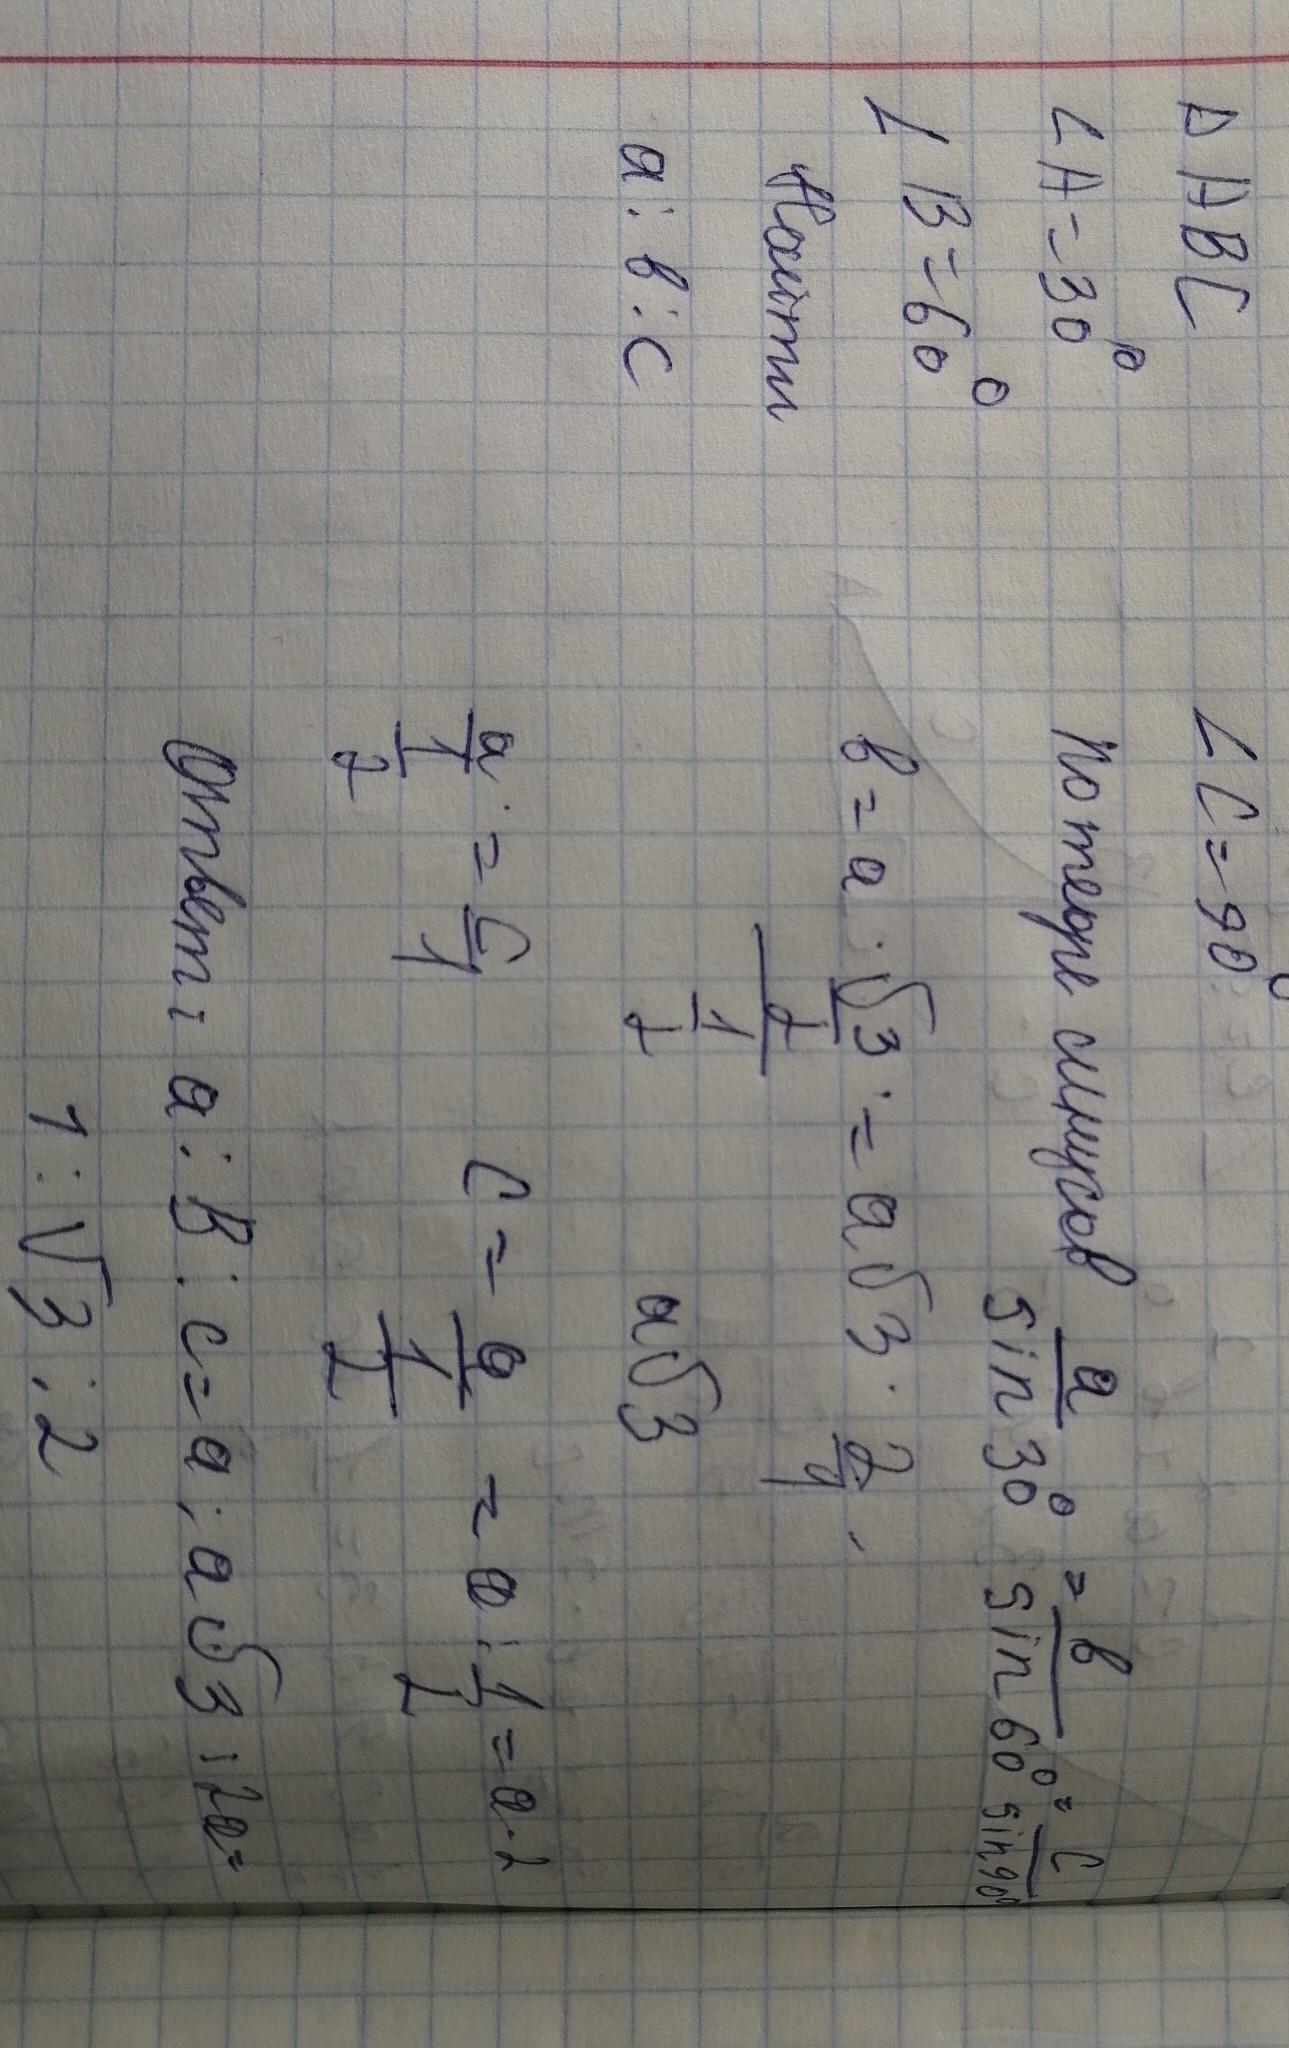 Δ ABC
∠A=30°
∠B=60°
Найти
a:b:c
∠C=90°
По теоре синусов a/sin30° = b/sin60° = c/sin90°
b=a·(√3/2)/(1/2)=a√3·2/1
a√3
a/(1/2)=c/1 c=a/(1/2)=a:1/2=a·2
Ответ: a:b:c=a:a√3:2a=
1:√3:2